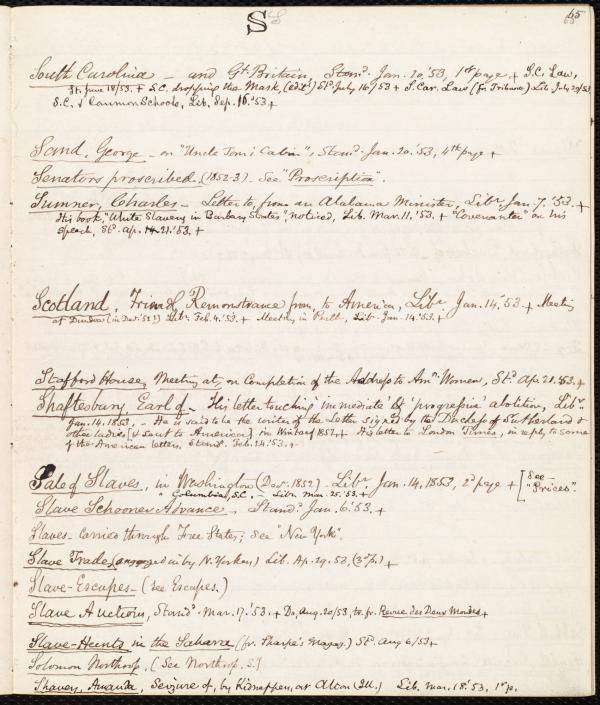 S
65
South Carolina — and Gt. Britain, Stand. Jan. 20, '53, 1st page + S.C. Law,
St. June 18/53. + S.C. dropping the Mask, (edit.) St. July 16/53 + S. Car. Law (fr. Tribune) Lib. July 29/53
S.C. & Common Schools, Lib. Sep. 16. '53 +
Sand, George — on "Uncle Tom's Cabin", Stand. Jan. 20. '53, 4th page +
Senators proscribed, (1852-3) — See "Proscription".
Sumner, Charles — Letter to, from an Alabama Minister, Libr. Jan. 7. '53. +
His book, "White Slavery in Barbary States", noticed, Lib. Mar. 11. '53. + "Covenanter" on his
speech, St. Ap. 21. '53. +
Scotland, Friendly Remonstrance from, to America, Libr. Jan. 14. '53. + Meeting
at Dundee (in Dec. '52?) Libr. Feb. 4. '53. + Meeting in Perth, Lib. Jan. 14. '53. +
Stafford House, Meeting at, on Completion of the Address to Amn. Women, St. Ap. 21. '53. +
Shaftesbury, Earl of. His letter touching 'immediate' & 'progressive' abolition, Libr.
Jan. 14. 1853. — He is said to be the writer of the Letter signed by the Duchess of Sutherland &
other ladies [& sent to America] in 1852. + His letter to London Times, in reply to some
of the American letters, Stand. Feb. 24. '53. +
Sale of Slaves, in Washington (Dec. 1852) — Libr. Jan. 14, 1853, 2d page + [See — "Prices".
" Columbia, S.C. — Libr. Mar. 25. '53. +
Slave Schooner Advance — Stand. Jan. 6. '53. +
Slaves — carried through Free States; see "New York".
Slave Trade, (engaged in by N. Yorkers) Lib. Ap. 29. 53, (3d p.) +
Slave-Escapes — (see Escapes.)
Slave Auctions, Stand. Mar. 17. '53. + Do, Aug. 20/53, tr. fr. Revue des Deux Mondes +
Slave-Hunts in the Sahara (fr. Sharpe's Magaz.) St. Aug 6/53 +
Solomon Northrop, (See Northrop, S.)
Shavey, Amanda, Seizure of, by Kidnappers, at Alton (Ill.) Lib. Mar. 18. '53, 1st p.